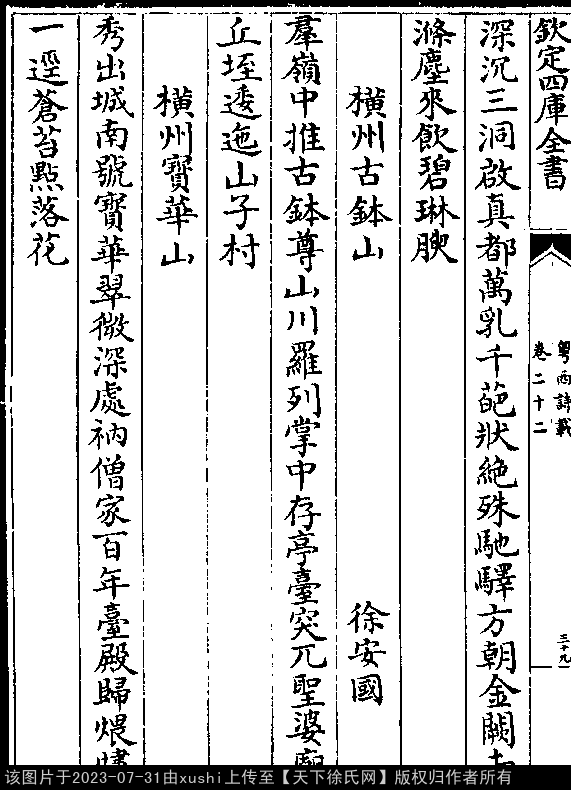 欽定四庫全書
粤西詩載
卷二十二
三十九
深沉三洞啟真都萬乳千葩狀絶殊馳驛方朝金闕
滌塵來飲碧琳腴
横州古鉢山
徐安國
羣嶺中推古鉢尊山川羅列掌中存亭臺突兀聖婆廟
丘垤逶迤山子村
横州寶華山
秀出城南號寶華翠微深處衲僧家百年臺殿歸煨
一逕蒼苔點落花
该图片于2023-07-31由xushi上传至【天下徐氏网】版权归作者所有